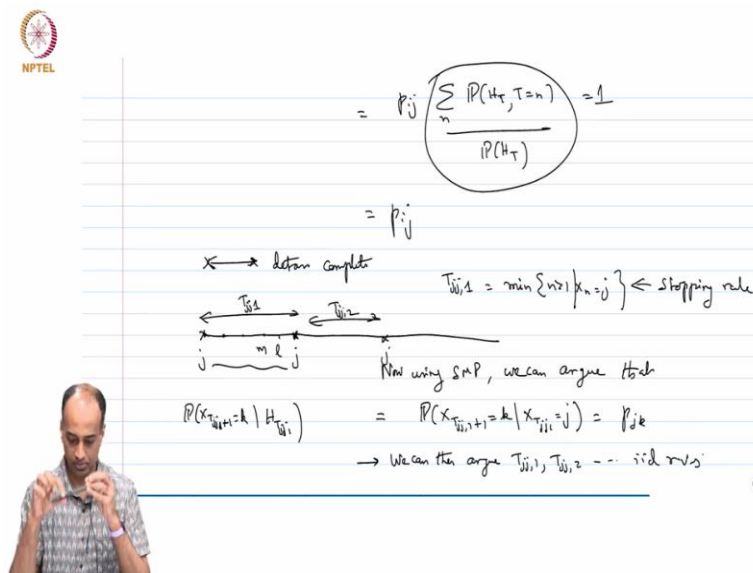 NPTEL
= Pij ∑n P(HT, T=n) / P(HT) = 1
= Pij
x↔x detour complete
Tjj,1 = min{n≥1 | Xn=j} ← Stopping rule
Tjj,1 Tjj,2
j m l j j
Now using SMP, we can argue that
P(XTjj,1+1=k | HTjj,1) = P(XTjj,1+1=k | XTjj,1=j) = Pjk
→ We can then argue Tjj,1, Tjj,2 --- iid rvs